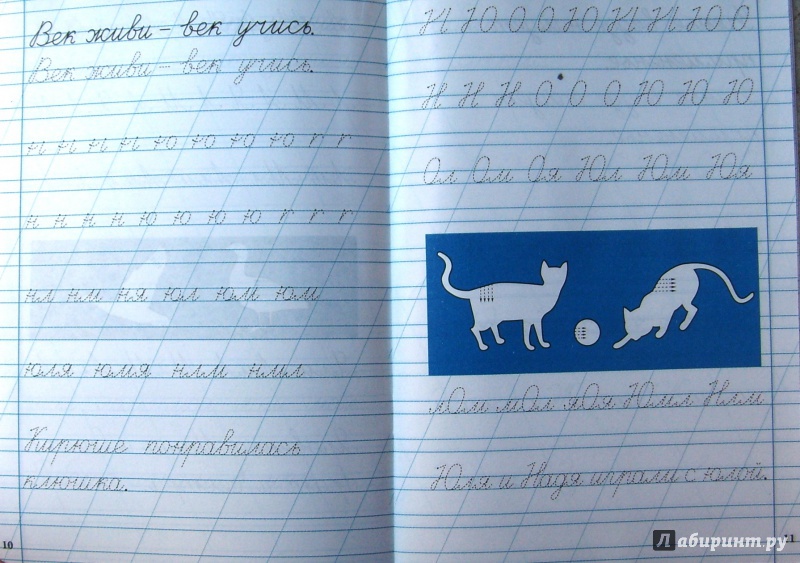 Век живи – век учись.
Век живи – век учись.
н н н н ю ю ю ю г г
н н н н ю ю ю ю г г г
нл нм ня юл юм юм
юля юмя нлм нмл
Кирюше понравилась
клюшка.
10
Н Ю О О Ю Н Н Ю О
Н Н Н О О О Ю Ю Ю
Ол Ом Оя Юл Юм Юя
лОм мОл яОя Юмл Нлм
Юля и Надя играли с юлой.
Лабиринт.ру